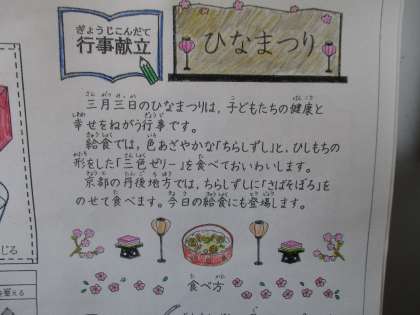 ぎょうじこんだて
行事献立
ひなまつり
三月三日のひなまつりは、子どもたちの健康と
幸せをねがう行事です。
給食では、色あざやかな「ちらしずし」と、ひしもちの
形をした「三色ゼリー」を食べておいわいします。
京都の丹後地方では、ちらしずしに「さばそぼろ」を
のせて食べます。今日の給食にも登場します。
食べ方
じる